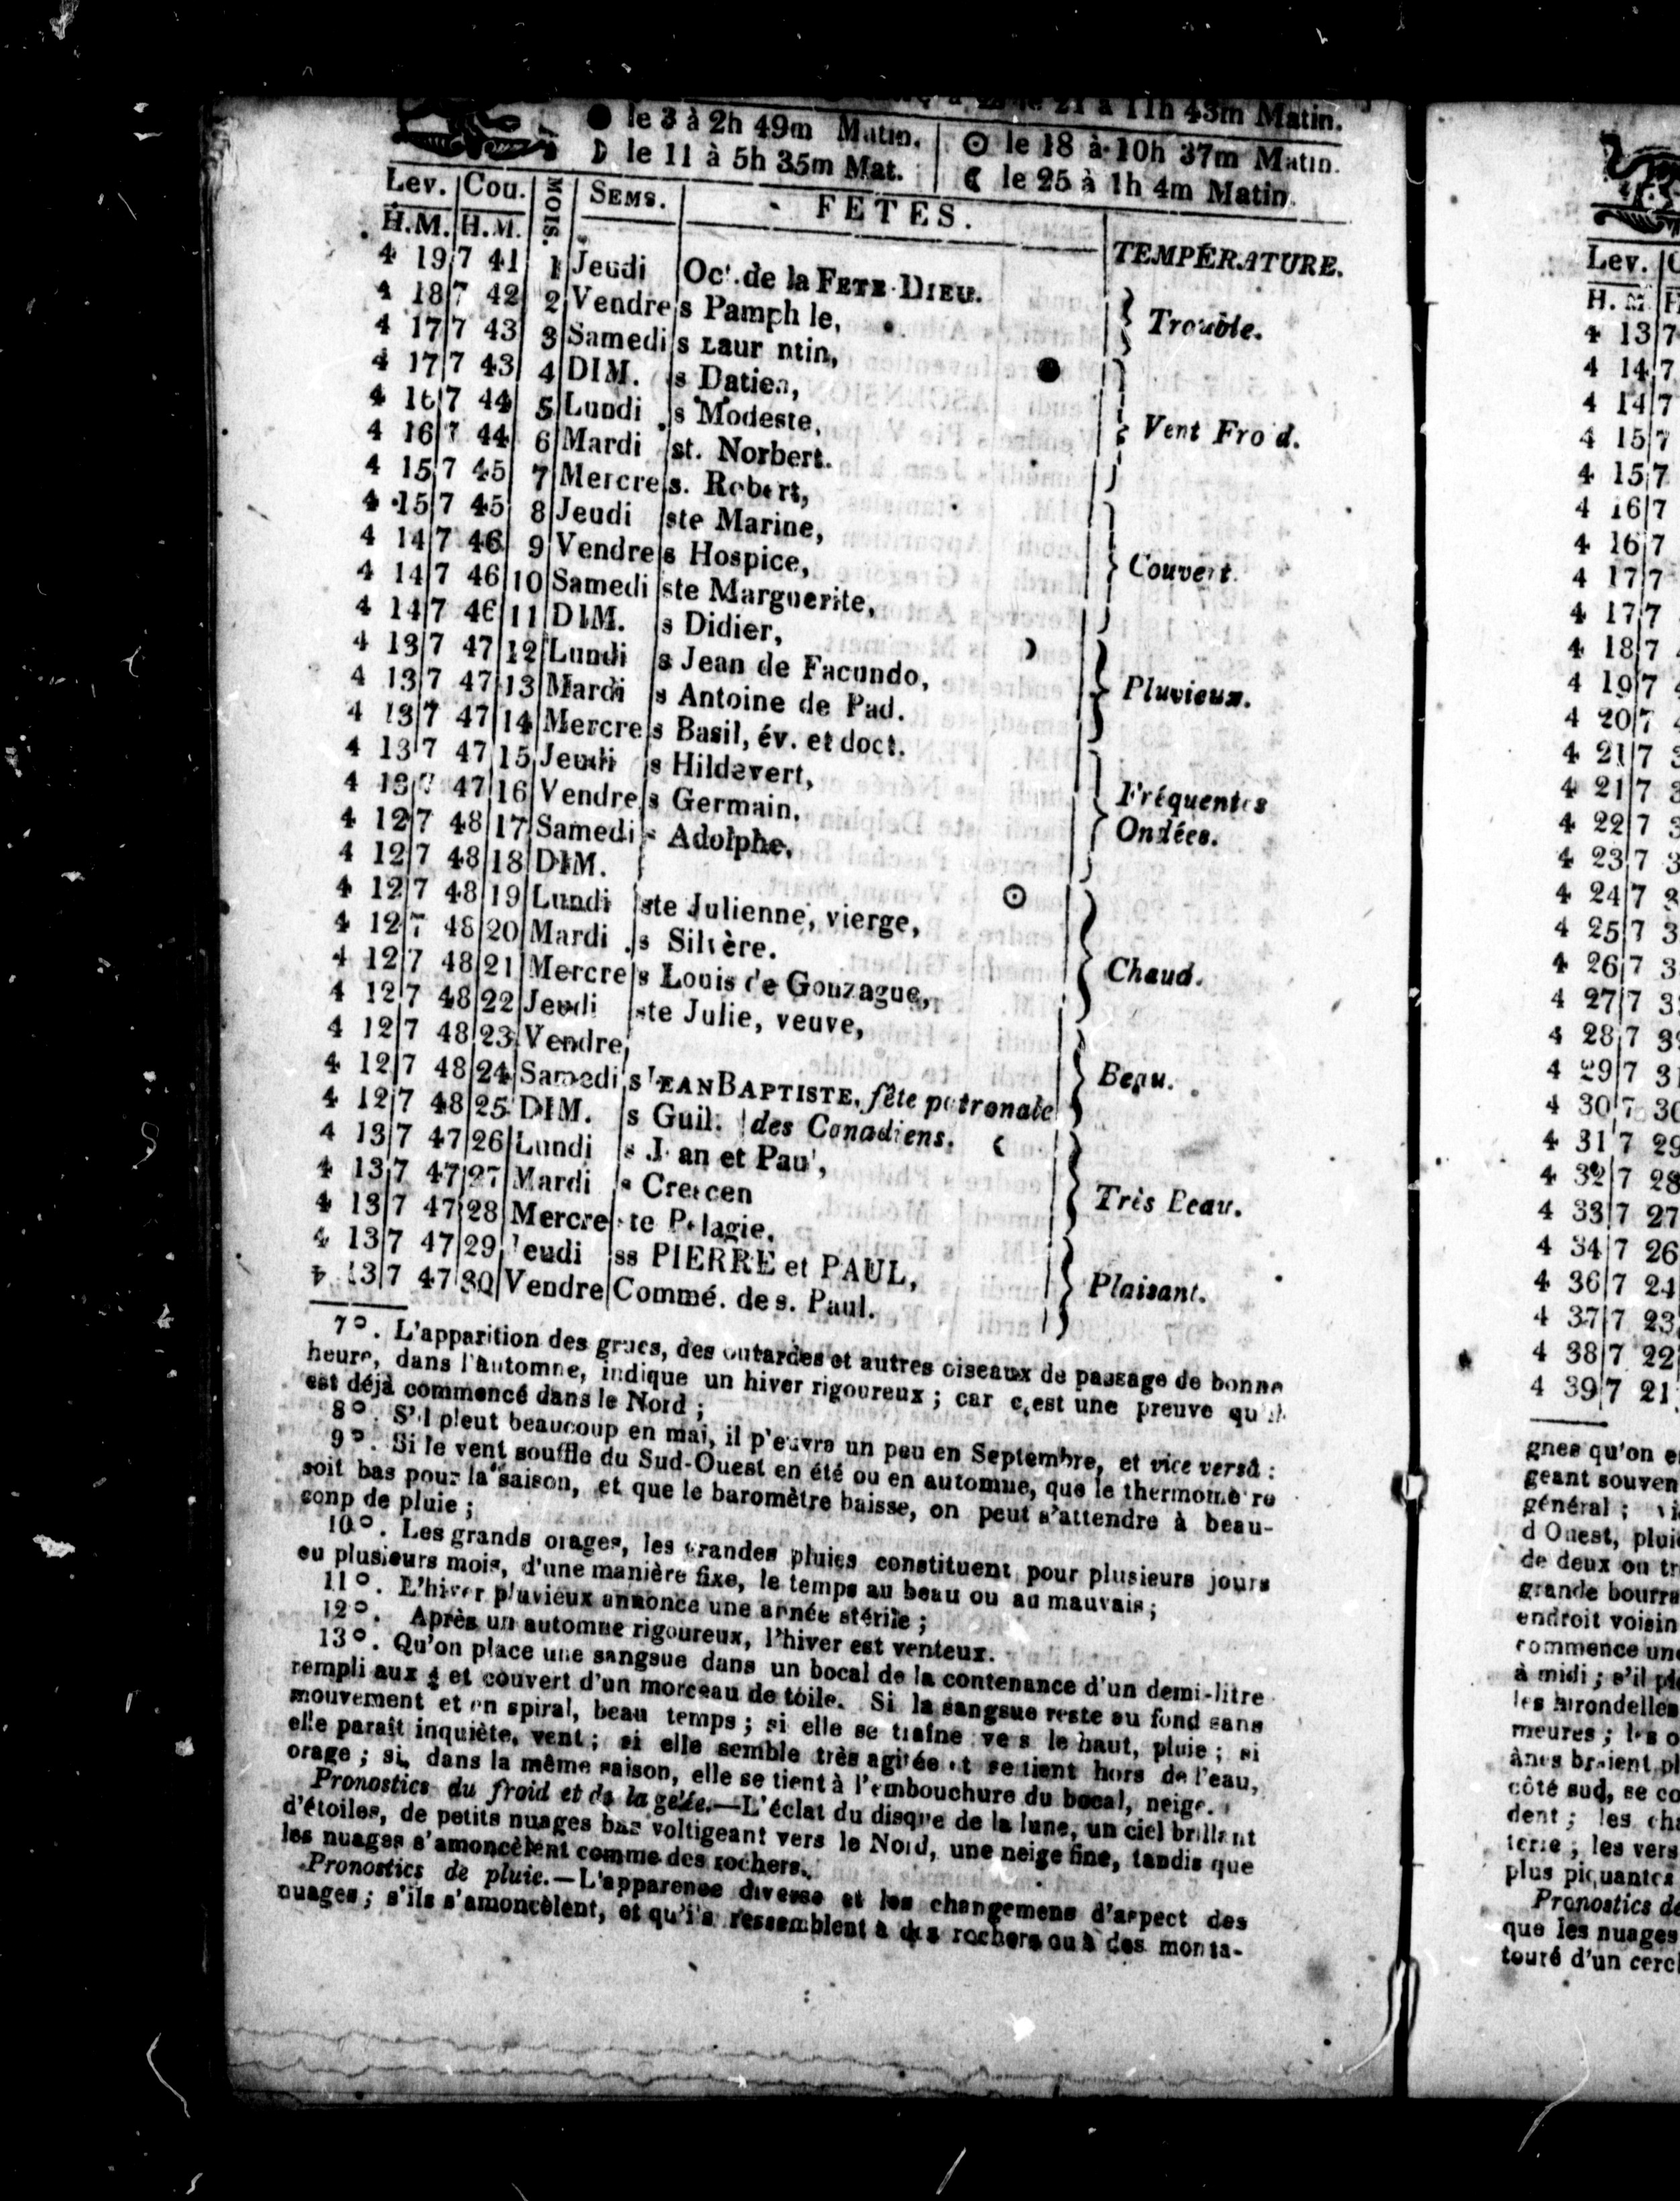 le 21 à 11h 43m Matin.
● le 3 à 2h 49m Matin. ☉ le 18 à 10h 37m Matin.
☽ le 11 à 5h 35m Mat. ☾ le 25 à 1h 4m Matin.
Lev. Cou. MOIS. SEMS. FETES. TEMPÉRATURE.
H.M. H.M.
4 19 7 41 1 Jeudi Oct. de la FETE DIEU.
4 18 7 42 2 Vendre s Pamph le, Trouble.
4 17 7 43 3 Samedi s Laur ntin,
4 17 7 43 4 DIM. s Datien, ●
4 16 7 44 5 Lundi s Modeste,
4 16 7 44 6 Mardi st. Norbert. Vent Fro d.
4 15 7 45 7 Mercre s. Robert,
4 15 7 45 8 Jeudi ste Marine,
4 14 7 46 9 Vendre s Hospice,
4 14 7 46 10 Samedi ste Marguerite, Couvert.
4 14 7 46 11 DIM. s Didier,
4 13 7 47 12 Lundi s Jean de Facundo, ☽
4 13 7 47 13 Mardi s Antoine de Pad. Pluvieux.
4 13 7 47 14 Mercre s Basil, év. et doct.
4 13 7 47 15 Jeudi s Hildevert,
4 13 7 47 16 Vendre s Germain, Fréquentes
4 12 7 48 17 Samedi s Adolphe, Ondées.
4 12 7 48 18 DIM.
4 12 7 48 19 Lundi ste Julienne, vierge, ☉
4 12 7 48 20 Mardi s Silvère.
4 12 7 48 21 Mercre s Louis de Gonzague, Chaud.
4 12 7 48 22 Jeudi ste Julie, veuve,
4 12 7 48 23 Vendre
4 12 7 48 24 Samedi s JEAN BAPTISTE, fête patronale Beau.
4 12 7 48 25 DIM. s Guil. des Canadiens. ☾
4 13 7 47 26 Lundi s J an et Paul,
4 13 7 47 27 Mardi s Crescen Très Beau.
4 13 7 47 28 Mercre ste Pelagie.
4 13 7 47 29 Jeudi ss PIERRE et PAUL,
4 13 7 47 30 Vendre Commé. de s. Paul. Plaisant.
7°. L'apparition des grues, des outardes et autres oiseaux de passage de bonne
heure, dans l'automne, indique un hiver rigoureux ; car c,est une preuve qu'il
est déjà commencé dans le Nord ;
8°. S'il pleut beaucoup en mai, il pleuvra un peu en Septembre, et vice versâ :
9°. Si le vent souffle du Sud-Ouest en été ou en automne, que le thermomètre
soit bas pour la saison, et que le baromètre baisse, on peut s'attendre à beau-
conp de pluie ;
10°. Les grands orages, les grandes pluies constituent pour plusieurs jours
ou plusieurs mois, d'une manière fixe, le temps au beau ou au mauvais ;
11°. L'hiver pluvieux annonce une année stérile ;
12°. Après un automne rigoureux, l'hiver est venteux.
13°. Qu'on place une sangsue dans un bocal de la contenance d'un demi-litre
rempli aux et couvert d'un morceau de toile. Si la sangsue reste au fond sans
mouvement et en spiral, beau temps ; si elle se traîne vers le haut, pluie ; si
elle paraît inquiète, vent ; si elle semble très agitée et se tient hors de l'eau,
orage ; si, dans la même saison, elle se tient à l'embouchure du bocal, neige.
Pronostics du froid et de la gelée.—L'éclat du disque de la lune, un ciel brillant
d'étoiles, de petits nuages bas voltigeant vers le Nord, une neige fine, tandis que
les nuages s'amoncèlent comme des rochers.
Pronostics de pluie.—L'apparence diverse et les changemens d'aspect des
nuages ; s'ils s'amoncèlent, et qu'ils ressemblent à des rochers ou à des monta-
Lev.
H. M.
4 13 7
4 14 7
4 14 7
4 15 7
4 15 7
4 16 7
4 16 7
4 17 7
4 17 7
4 18 7
4 19 7
4 20 7
4 21 7 3
4 21 7 3
4 22 7 3
4 23 7 3
4 24 7 3
4 25 7 3
4 26 7 3
4 27 7 3
4 28 7 3
4 29 7 31
4 30 7 30
4 31 7 29
4 32 7 28
4 33 7 27
4 34 7 26
4 36 7 24
4 37 7 23
4 38 7 22
4 39 7 21
gnes qu'on e
geant souven
général ;
d Ouest, pluie
de deux ou tr
grande bourra
endroit voisin
commence une
à midi ; s'il ple
les hirondelles
meures ; les o
ânes braient pl
côté sud, se co
dent ; les cha
terre ; les vers
plus piquantes
Pronostics de
que les nuages
touré d'un cercl